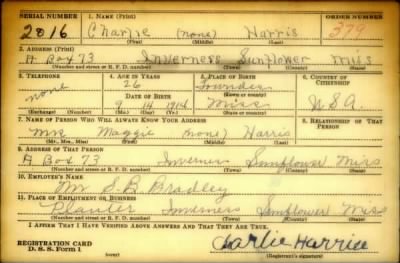 SERIAL NUMBER 1. NAME (Print) ORDER NUMBER
2016 Charlie (none) Harris 379
(First) (Middle) (Last)
2. ADDRESS (Print)
A Box 73 Inverness Sunflower Miss
(Number and street or R. F. D. number) (Town) (County) (State)
3. TELEPHONE 4. AGE IN YEARS 5. PLACE OF BIRTH 6. COUNTRY OF CITIZENSHIP
none 26 Lowndes
DATE OF BIRTH (Town or county)
9 14 1914 Miss USA
(Mo.) (Day) (Yr.) (State or country)
7. NAME OF PERSON WHO WILL ALWAYS KNOW YOUR ADDRESS 8. RELATIONSHIP OF THAT PERSON
Mrs Maggie (none) Harris
(Mr., Mrs., Miss) (First) (Middle) (Last)
9. ADDRESS OF THAT PERSON
A Box 73 Inverness Sunflower Miss
(Number and street or R. F. D. number) (Town) (County) (State)
10. EMPLOYER'S NAME
Mr S. B. Bradley
11. PLACE OF EMPLOYMENT OR BUSINESS
Planter Inverness Sunflower Miss
(Number and street or R. F. D. number) (Town) (County) (State)
I AFFIRM THAT I HAVE VERIFIED ABOVE ANSWERS AND THAT THEY ARE TRUE.
REGISTRATION CARD
D. S. S. Form 1 (over) (Registrant's signature)